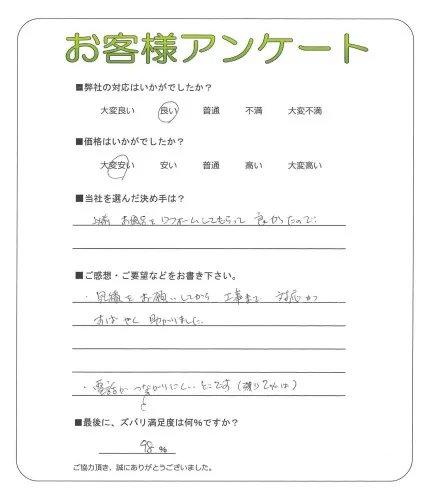 お客様アンケート
■弊社の対応はいかがでしたか?
大変良い 良い 普通 不満 大変不満
■価格はいかがでしたか?
大変安い 安い 普通 高い 大変高い
■当社を選んだ決め手は?
以前 お風呂をリフォームしてもらって 良かったので
■ご感想・ご要望などをお書き下さい。
・見積をお願いしてから 工事まで 対応が
すばやく 助かりました
・電話が つながりにくいところです (残り2%は)
■最後に、ズバリ満足度は何%ですか?
98 %
ご協力頂き、誠にありがとうございました。